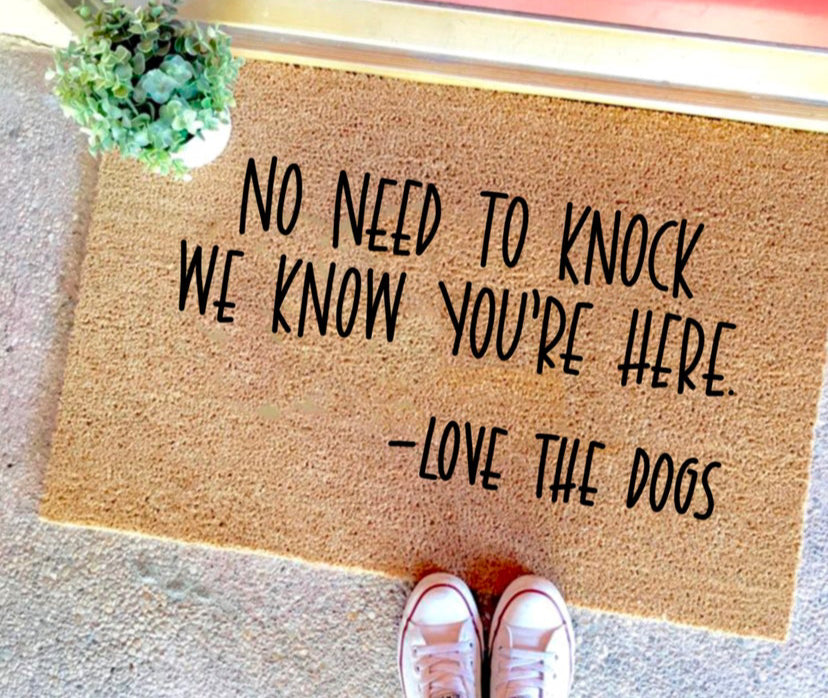 NO NEED TO KNOCK
WE KNOW YOU'RE HERE.
-LOVE THE DOGS